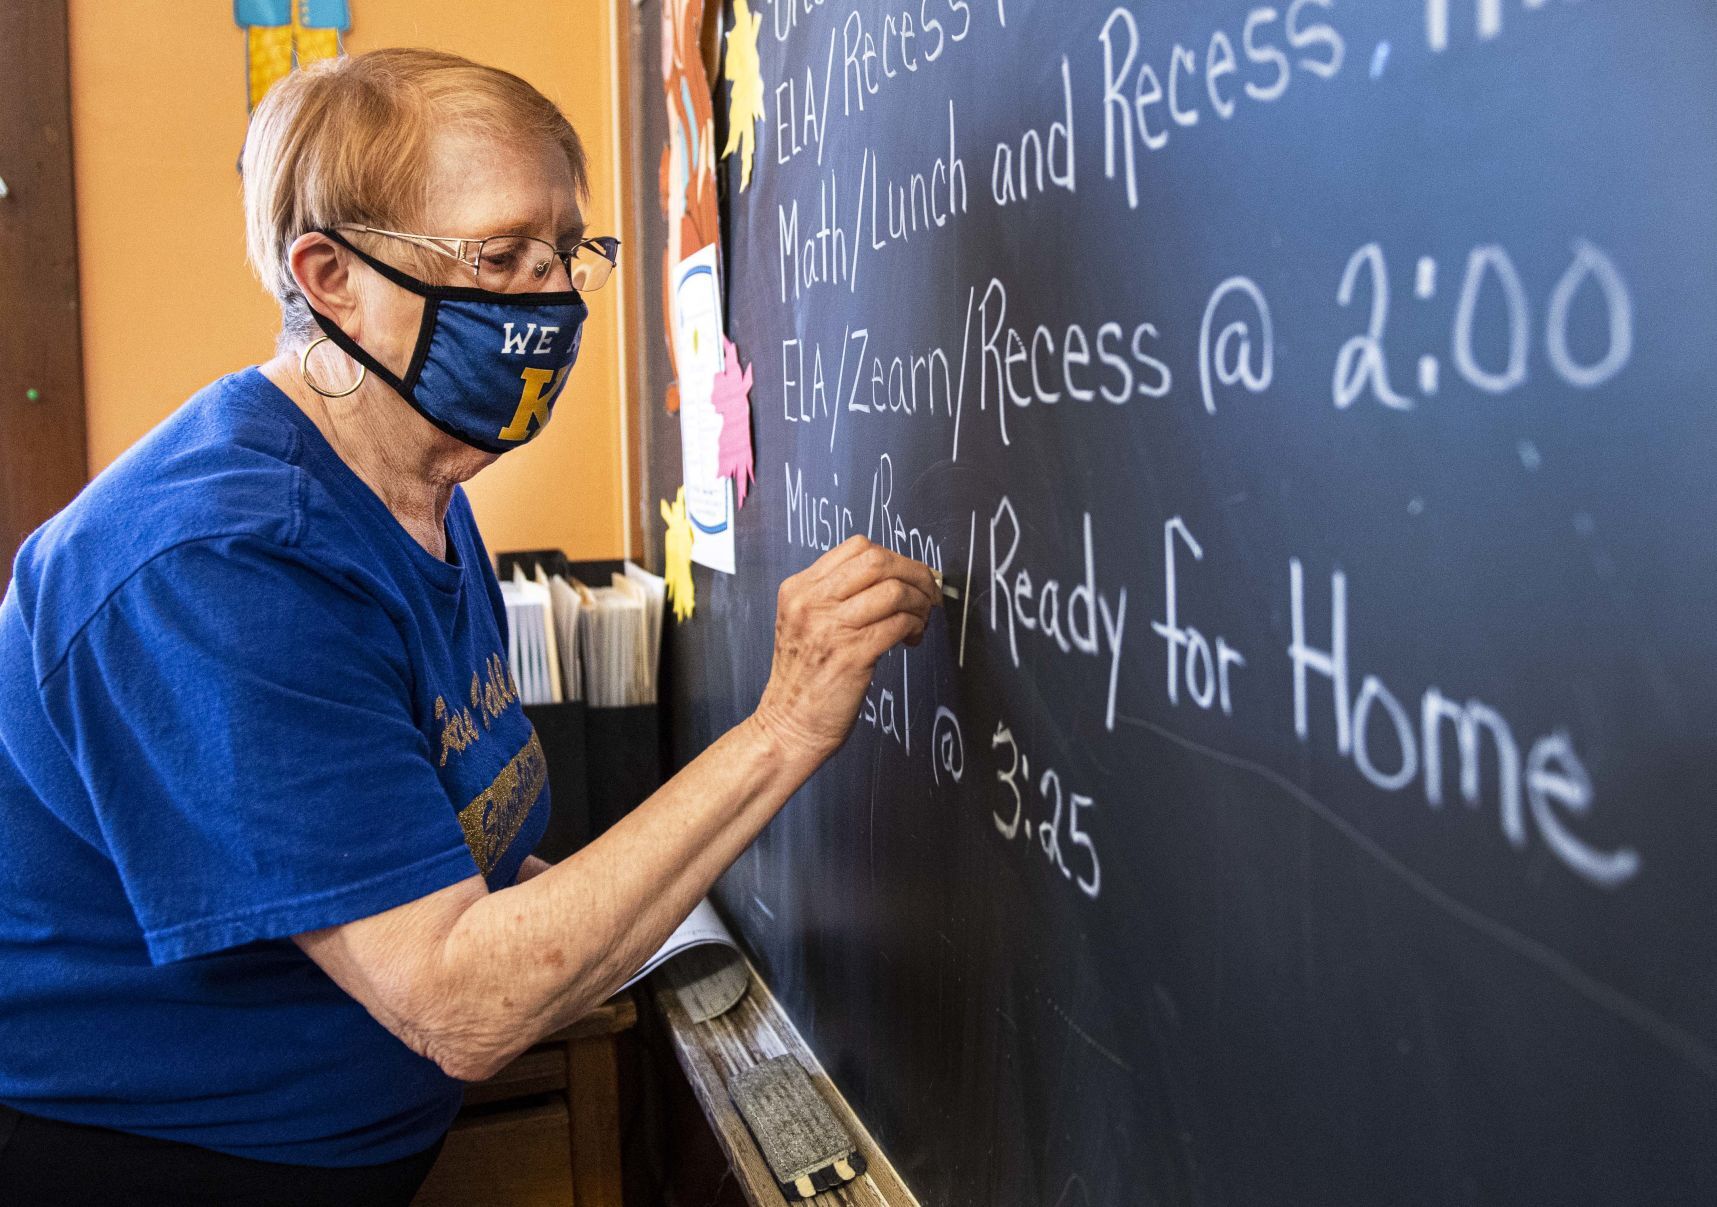 ELA/Recess
Math/Lunch and Recess
ELA/Zearn/Recess @ 2:00
Music/ /Ready for Home
@ 3:25
WE
K